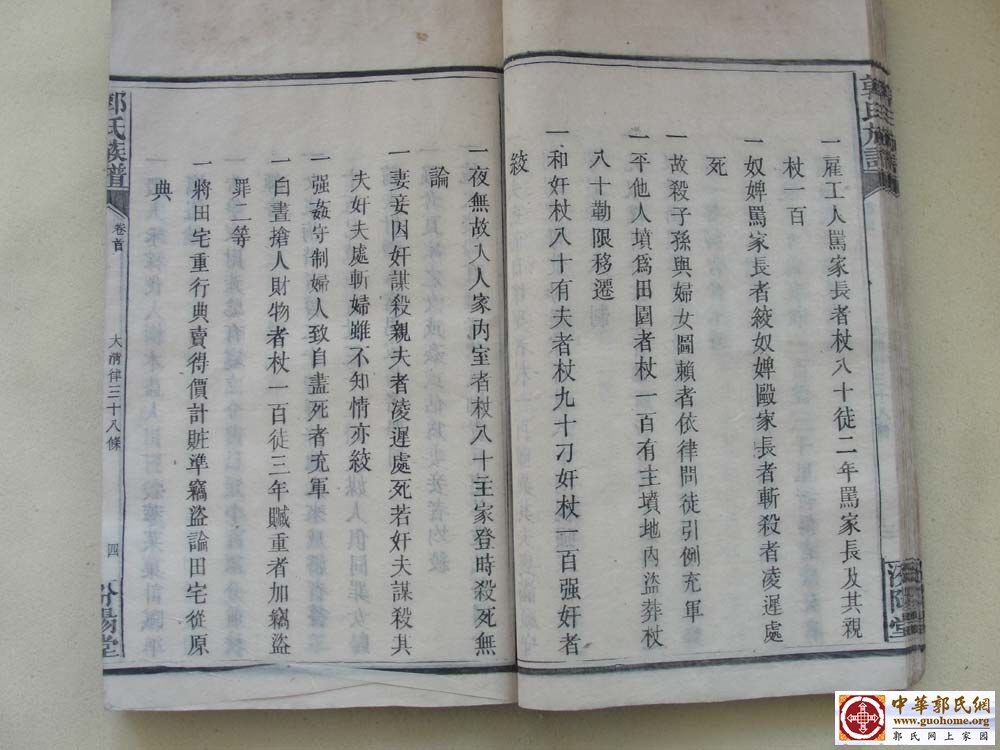 一雇工人罵家長者杖八十徒二年罵家長及其親
杖一百
一奴婢罵家長者絞奴婢毆家長者斬殺者凌遲處
死
一故殺子孫與婦女圖賴者依律問徒引例充軍
一平他人墳爲田園者杖一百有主墳地內盜葬杖
八十勒限移遷
一和奸杖八十有夫者杖九十刁奸杖一百强奸者
絞
一夜無故入人家內室者杖八十主家登時殺死無
論
一妻妾因奸謀殺親夫者凌遲處死若奸夫謀殺其
夫奸夫處斬婦雖不知情亦絞
一强姦守制婦人致自盡死者充軍
一白晝搶人財物者杖一百徒三年贓重者加竊盜
罪二等
一將田宅重行典賣得價計賍準竊盜論田宅從原
典
郭氏族譜
卷首
大清律三十八條
四
汾陽堂
中華郭氏網
www.guohome.org
郭氏网上家园